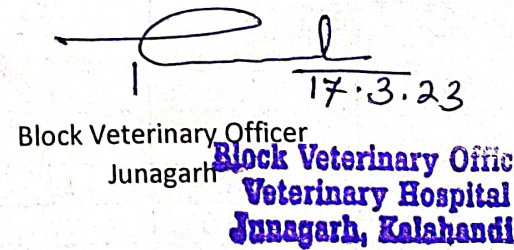 17.3.23
Block Veterinary Officer
Junagarh
Block Veterinary Offic
Veterinary Hospital
Junagarh, Kalahandi